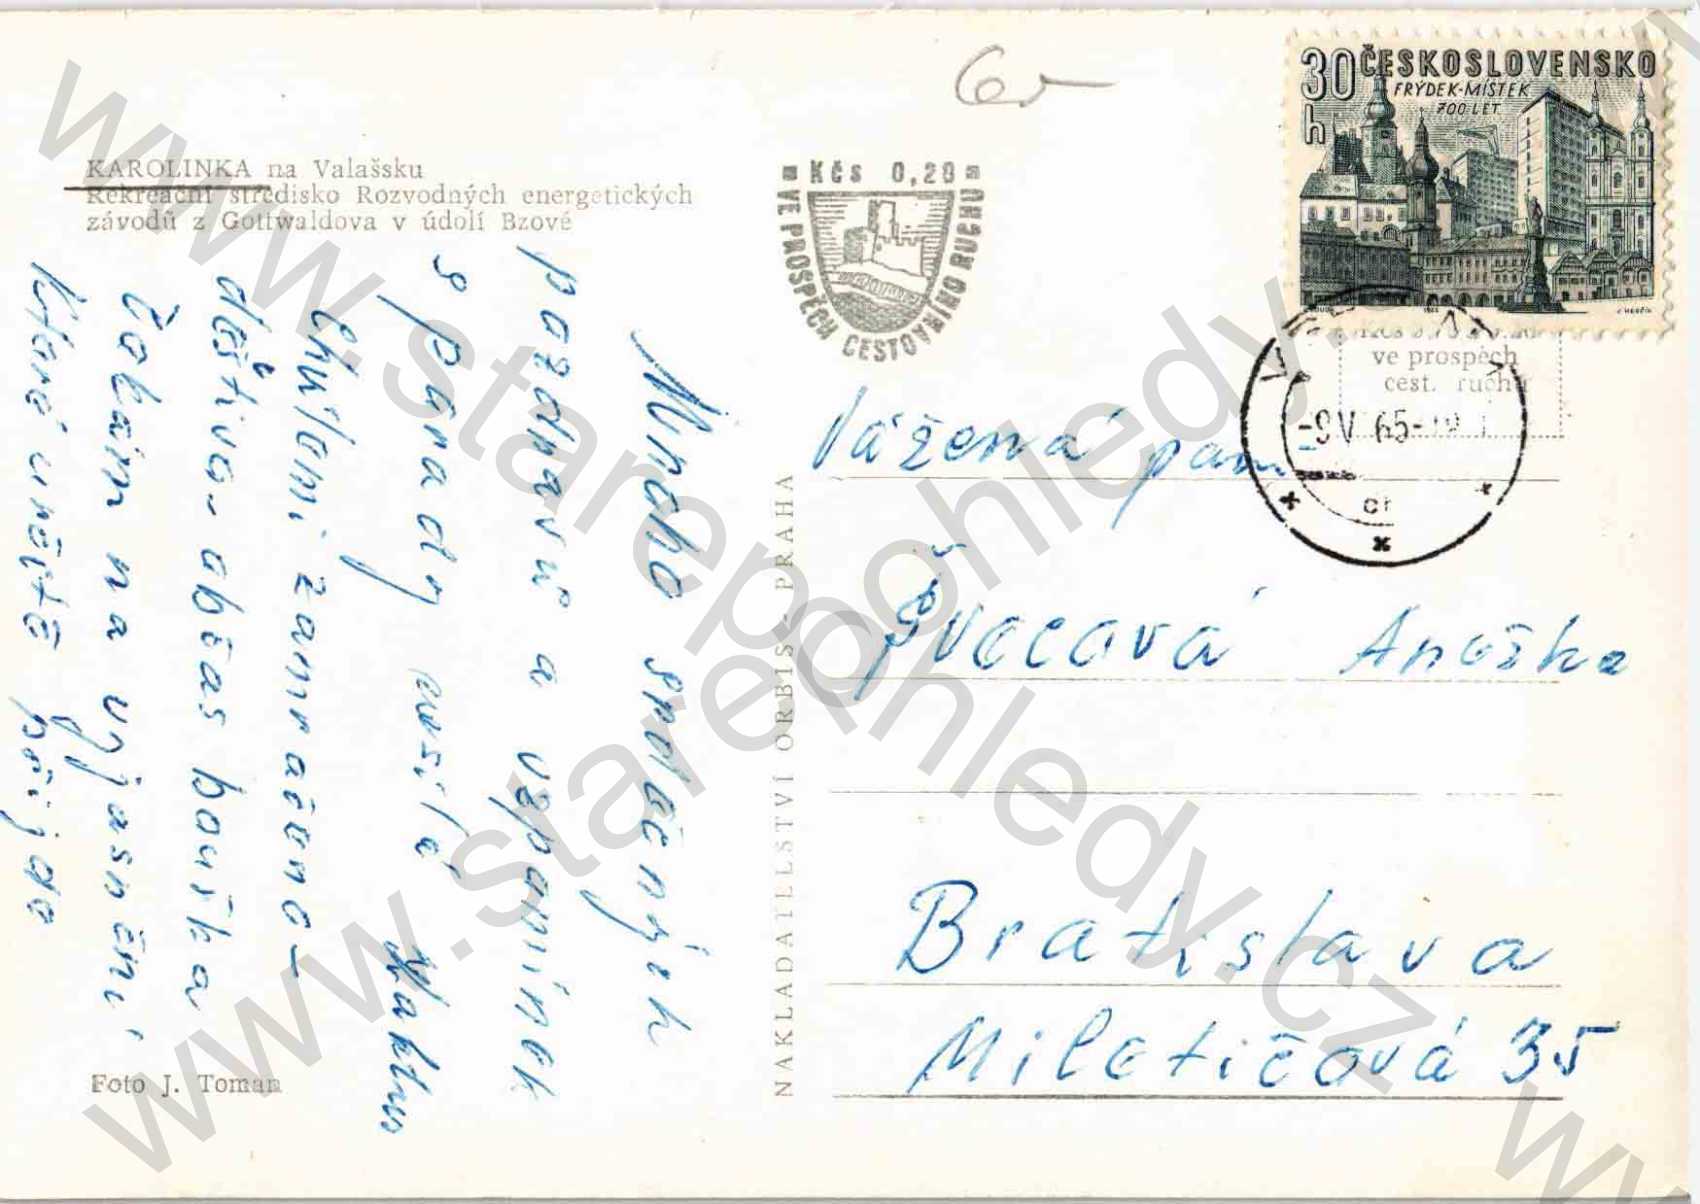 KAROLINKA na Valašsku
Rekreační středisko Rozvodných energetických
závodů z Gottwaldova v údolí Bzové
Kčs 0,20
VE PROSPĚCH CESTOVNÍHO RUCHU
30 h
ČESKOSLOVENSKO
FRÝDEK-MÍSTEK
700 LET
ve prospěch
cest. ruchu
-9.V.65-
Mnoho srdečných
pozdravů a vzpomínek
s Parady
chvílemi zamračeno -
deštivo - občas bouřka
čekám na vyjasnění
které určitě přijde
Vážená paní
Švecová Anežka
Bratislava
Miletičová 35
NAKLADATELSTVÍ ORBIS, PRAHA
Foto J. Toman
www.starepohledy.cz
www.starepohledy.cz